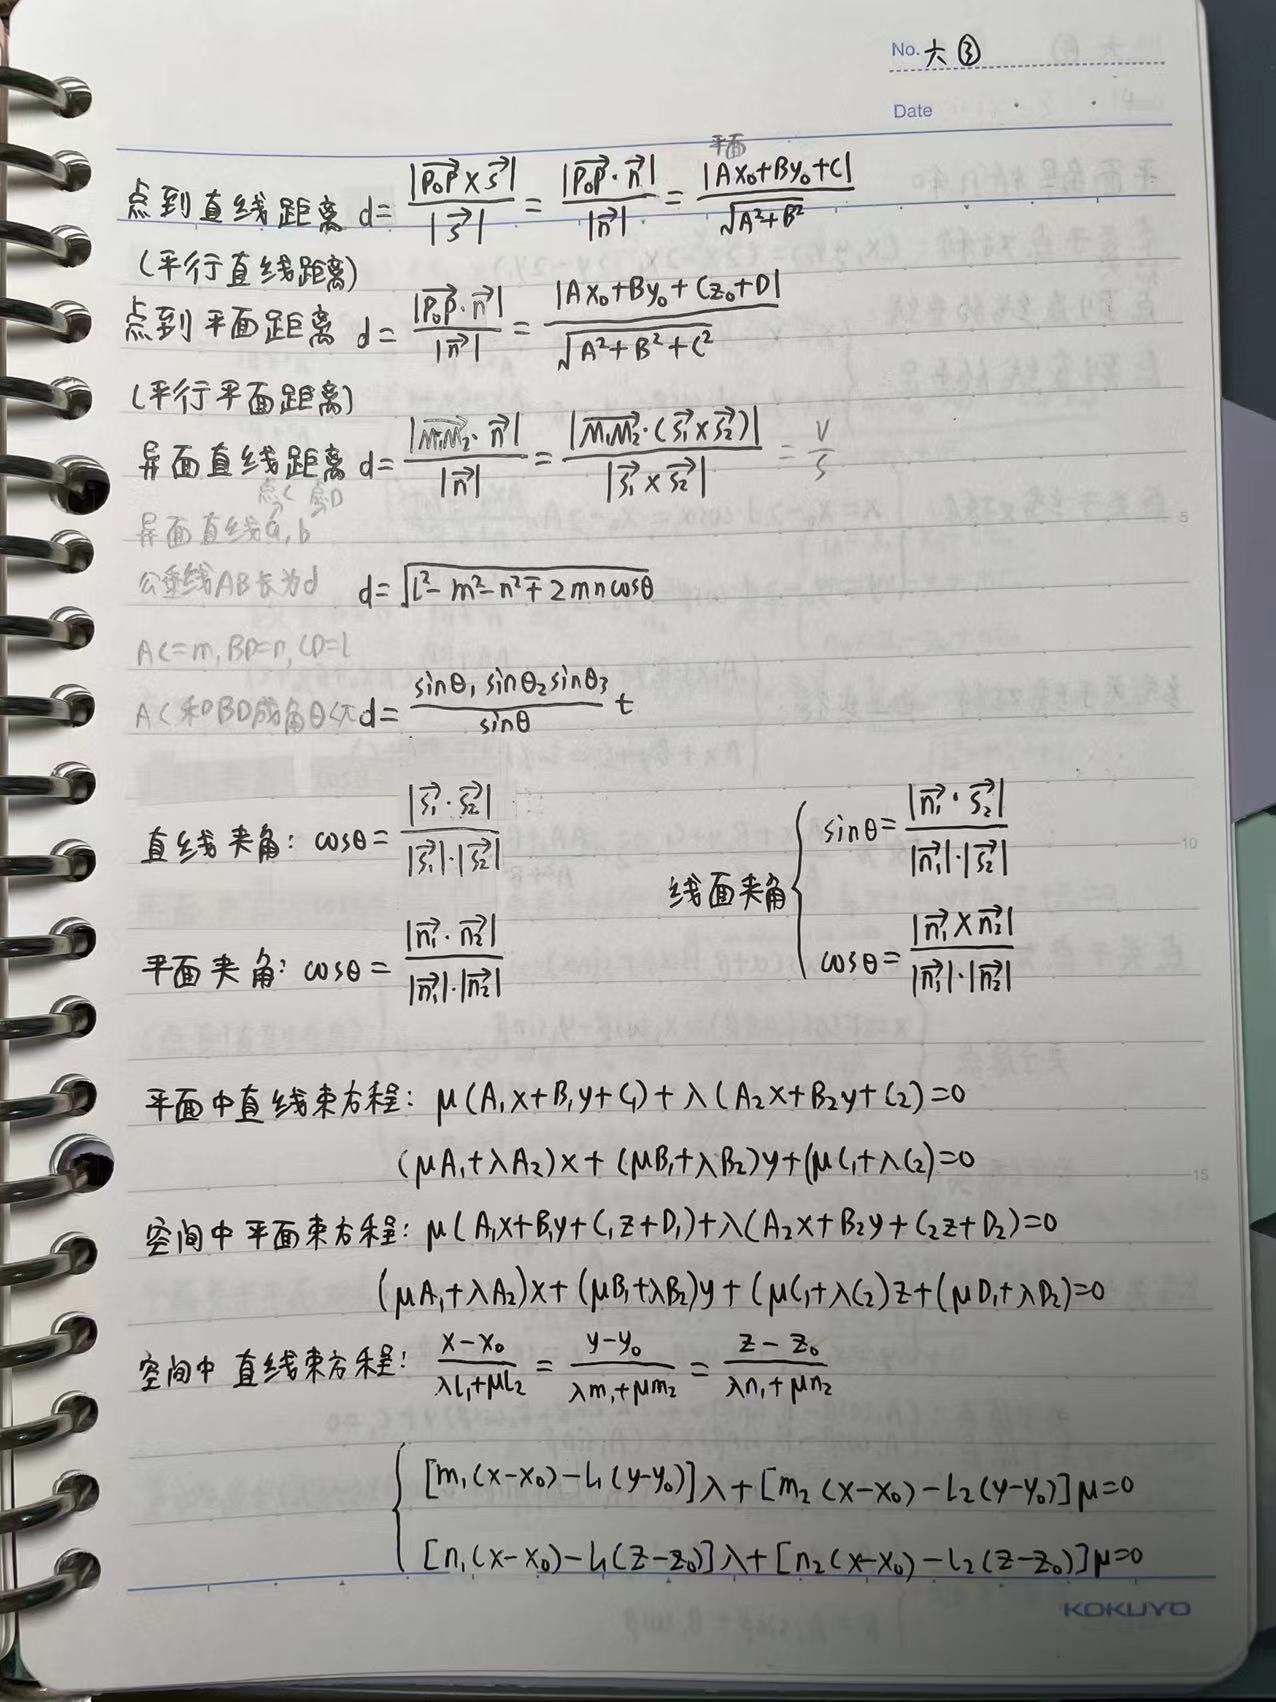 No. 六③
Date
平面
点到直线距离 d= |P₀P×s|/|s| = |P₀P·n|/|n| = |Ax₀+By₀+C|/√(A²+B²)
(平行直线距离)
点到平面距离 d= |P₀P·n|/|n| = |Ax₀+By₀+Cz₀+D|/√(A²+B²+C²)
(平行平面距离)
异面直线距离 d= |M₁M₂·n|/|n| = |M₁M₂·(s₁×s₂)|/|s₁×s₂| = V/S
点C 点D
异面直线a,b
公垂线AB长为d d=√(l²-m²-n²∓2mncosθ)
AC=m,BD=n,CD=l
AC和BD成角θ d= sinθ₁sinθ₂sinθ₃/sinθ t
直线夹角: cosθ= |s₁·s₂|/|s₁|·|s₂|
线面夹角 { sinθ= |n₁·s₂|/|n₁|·|s₂|
cosθ= |n₁×n₂|/|n₁|·|n₂|
平面夹角: cosθ= |n₁·n₂|/|n₁|·|n₂|
平面中直线束方程: μ(A₁x+B₁y+C₁)+λ(A₂x+B₂y+C₂)=0
(μA₁+λA₂)x+(μB₁+λB₂)y+(μC₁+λC₂)=0
空间中平面束方程: μ(A₁x+B₁y+C₁z+D₁)+λ(A₂x+B₂y+C₂z+D₂)=0
(μA₁+λA₂)x+(μB₁+λB₂)y+(μC₁+λC₂)z+(μD₁+λD₂)=0
空间中直线束方程: x-x₀/λl₁+μl₂ = y-y₀/λm₁+μm₂ = z-z₀/λn₁+μn₂
{ [m₁(x-x₀)-l₁(y-y₀)]λ+[m₂(x-x₀)-l₂(y-y₀)]μ=0
[n₁(x-x₀)-l₁(z-z₀)]λ+[n₂(x-x₀)-l₂(z-z₀)]μ=0
5
10
15
KOKUYO